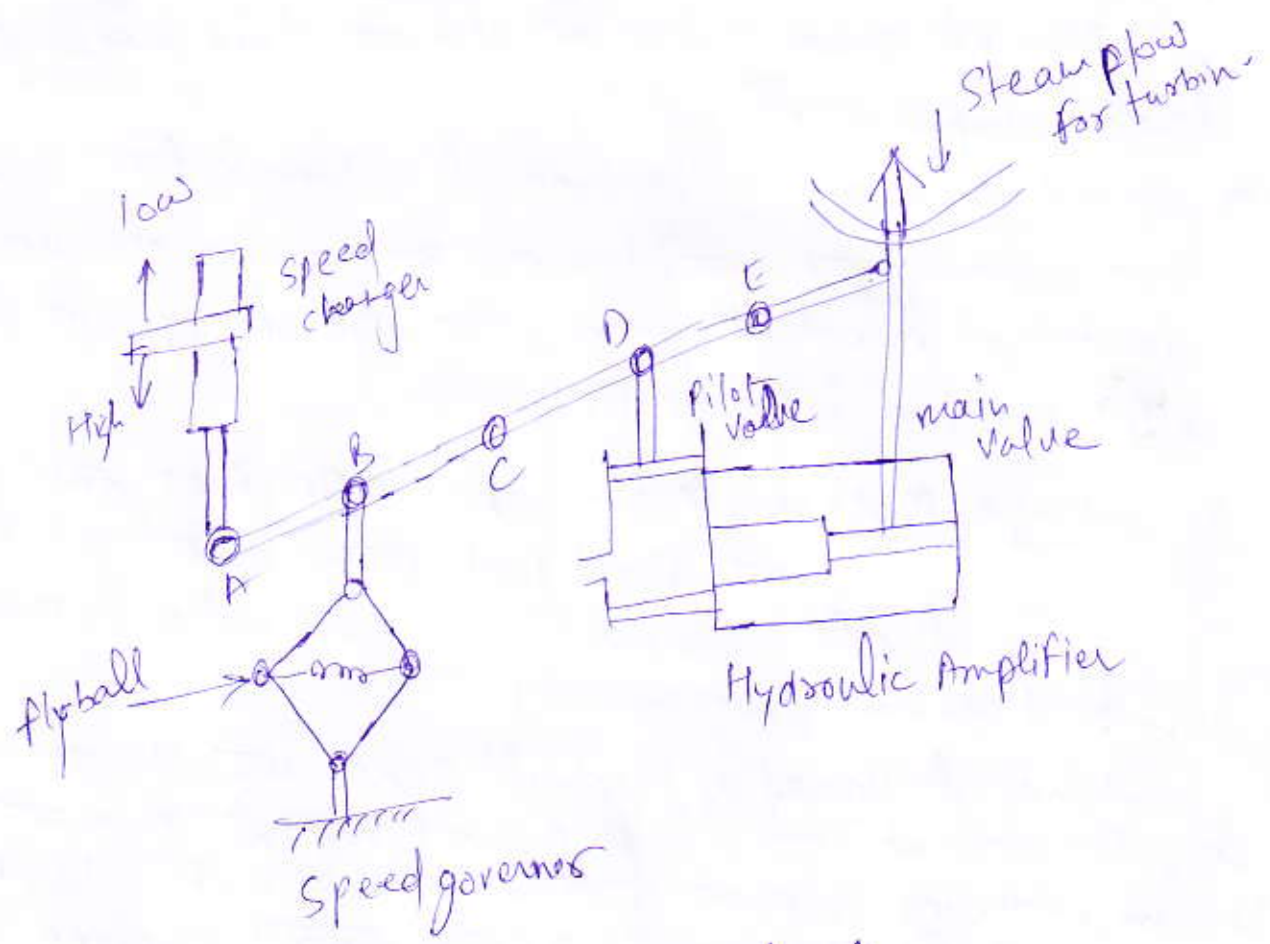 Steam flow
for turbin
low
speed
changer
High
A
B
C
D
E
Pilot
valve
main
valve
flyball
Hydroulic Amplifier
Speed governor